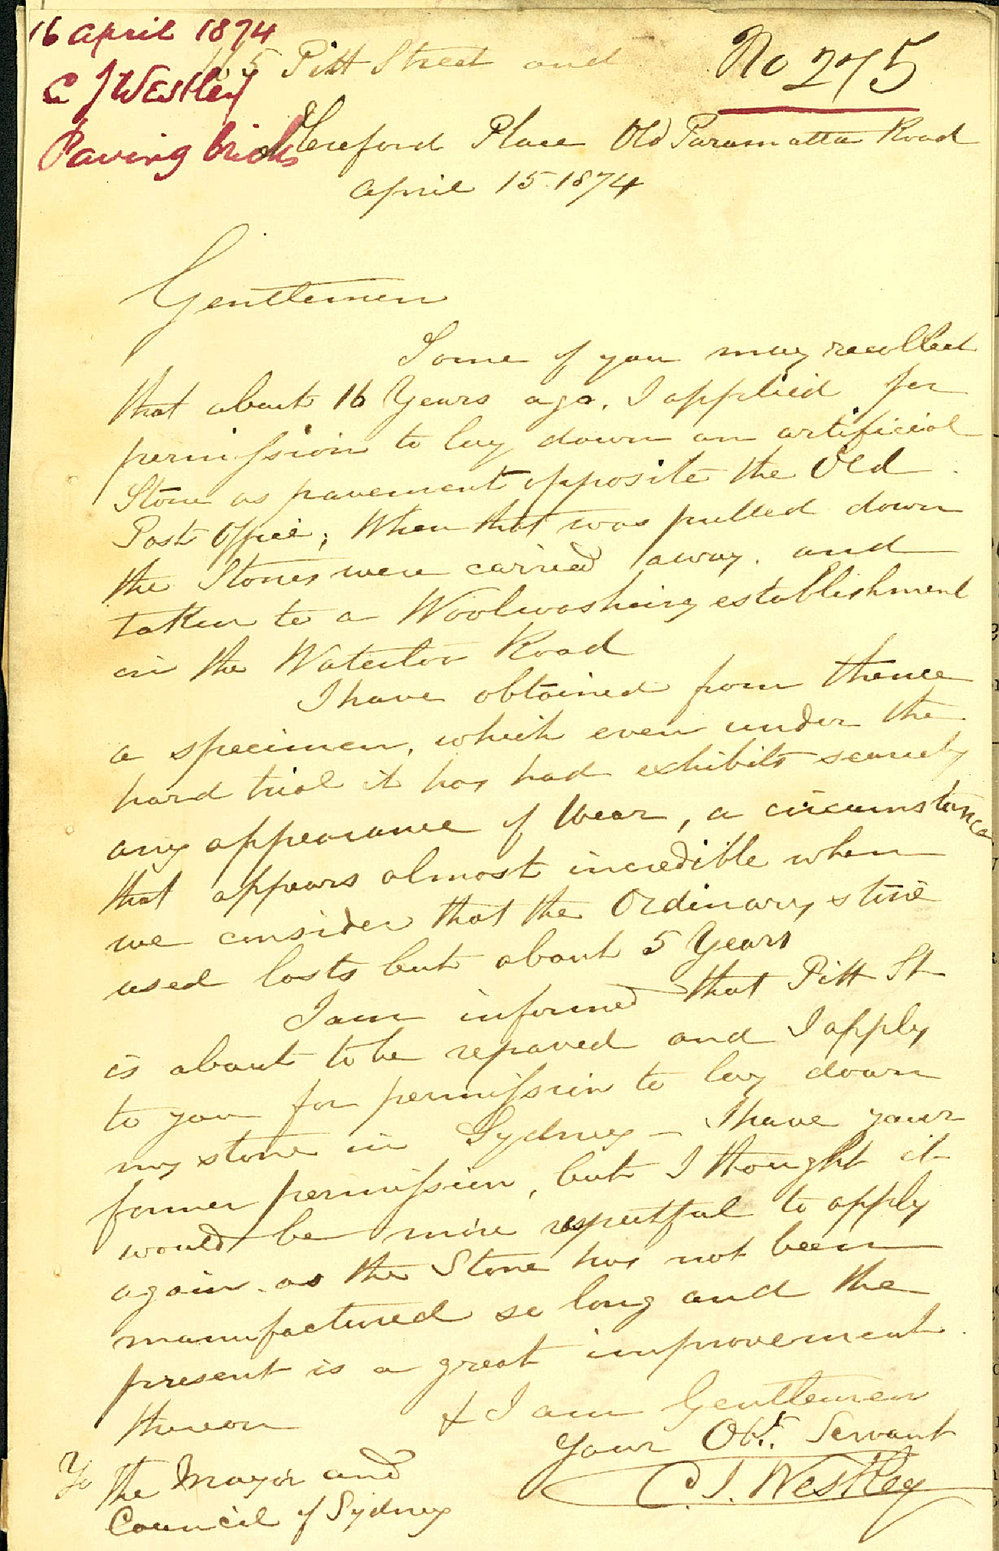 16 April 1874
C J Westley
Paving bricks
No 275
165 Pitt Street and
Hereford Place Old Paramatta Road
April 15 1874
Gentlemen
Some of you may recollect
that about 16 Years ago, I applied for
permission to lay down an artificial
Stone as pavement opposite the Old
Post Office; When that was pulled down
the Stones were carried away. and
taken to a Woolwashing establishment
in the Waterloo Road
I have obtained from thence
a specimen, which even under the
hard trial it has had exhibits scarcely
any appearance of Wear, a circumstance
that appears almost incredible when
we consider that the Ordinary stone
used lasts but about 5 Years
I am informed that Pitt St
is about to be repaved and I apply
to you for permission to lay down
my stone in Sydney - I have your
former permission, but I thought it
would be more respectful to apply
again. as the Stone has not been
manufactured so long and the
present is a great improvement
thereon
& I am Gentlemen
Your Obt. Servant
C. J. Westley
To the Mayor and
Council of Sydney